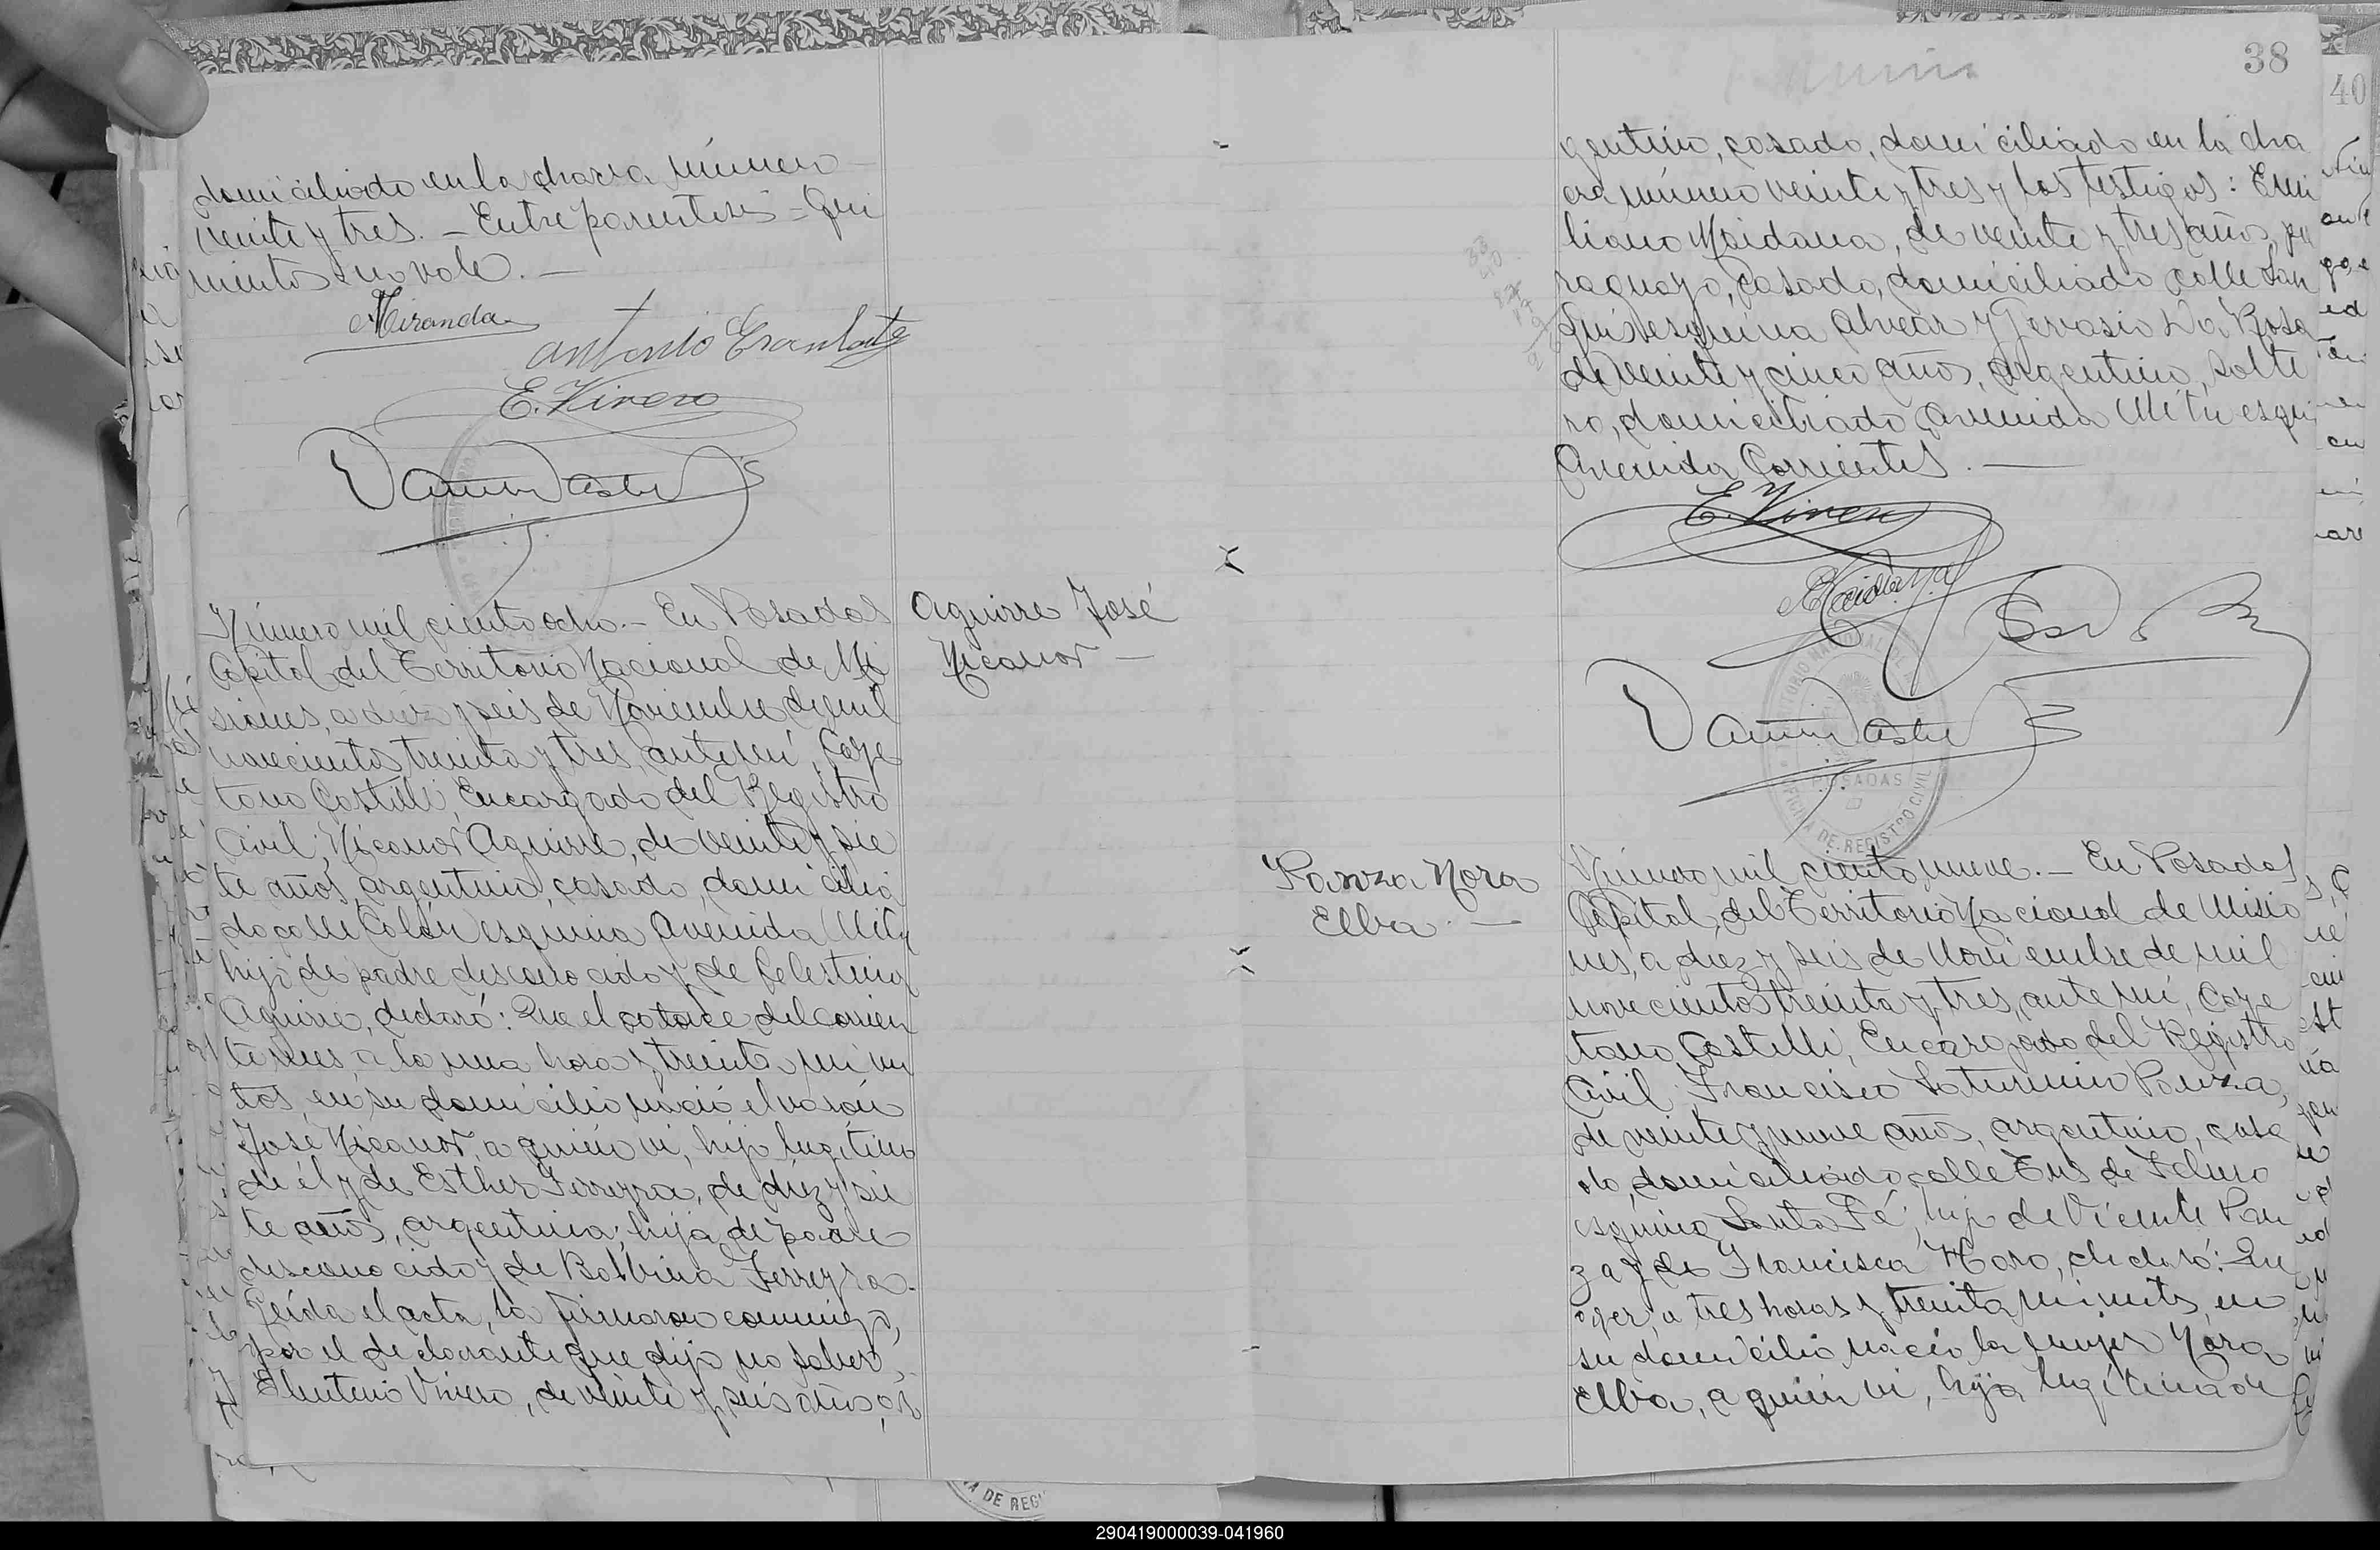 domiciliado en la chacra número
veinte y tres. — Entre parentesis = Qui
nientos = no vale. —
Miranda
Antonio
E. Vivero
Número mil ciento ocho. — En Posadas
Capital del Territorio Nacional de Mi
siones, a diez y seis de Noviembre de mil
novecientos treinta y tres, ante mí, Caye
tano Castelli, Encargado del Registro
Civil; Nicanor Aguirre, de veinte y sie
te años, argentino, casado, domicilia
do calle Colón esquina Avenida Mitre
hijo de padre desconocido y de Celestina
Aguirre, declaró: Que el catorce del corrien
te mes, a la una hora y treinta minu
tos, en su domicilio nació el varón
José Nicanor, a quién vi, hijo legítimo
de él y de Esther Ferreyra, de diez y sie
te años, argentina, hija de padre
desconocido y de Balbina Ferreyra.
Leída el acta, la firmaron conmigo,
por el declarante que dijo no saber,
Eleuterio Vivero, de veinte y seis años, ar
Aguirre José
Nicanor —
38
gentino, casado, domiciliado en la cha
cra número veinte y tres y los testigos: Emi
liano Maidana, de veinte y tres años, pa
raguayo, casado, domiciliado calle San
Luis esquina Alvear y Gervasio Da Rosa
de veinte y cinco años, argentino, solte
ro, domiciliado Avenida Mitre esqui
Avenida Corrientes. —
E. Vivero
Maidana
POSADAS
OFICINA DE REGISTRO CIVIL
Panza Nora
Elba. —
Número mil ciento nueve. — En Posadas
Capital del Territorio Nacional de Misio
nes, a diez y seis de Noviembre de mil
novecientos treinta y tres, ante mí, Caye
tano Castelli, Encargado del Registro
Civil; Francisco Saturnino Panza,
de veinte y nueve años, argentino, casa
do, domiciliado calle Tres de Febrero
esquina Santa Fé, hijo de Vicente Pan
za y de Francisca Moro, declaró: Que
ayer, a tres horas y treinta minutos, en
su domicilio nació la mujer Nora
Elba, a quién vi, hija legítima de
40
A DE REGI
290419000039-041960